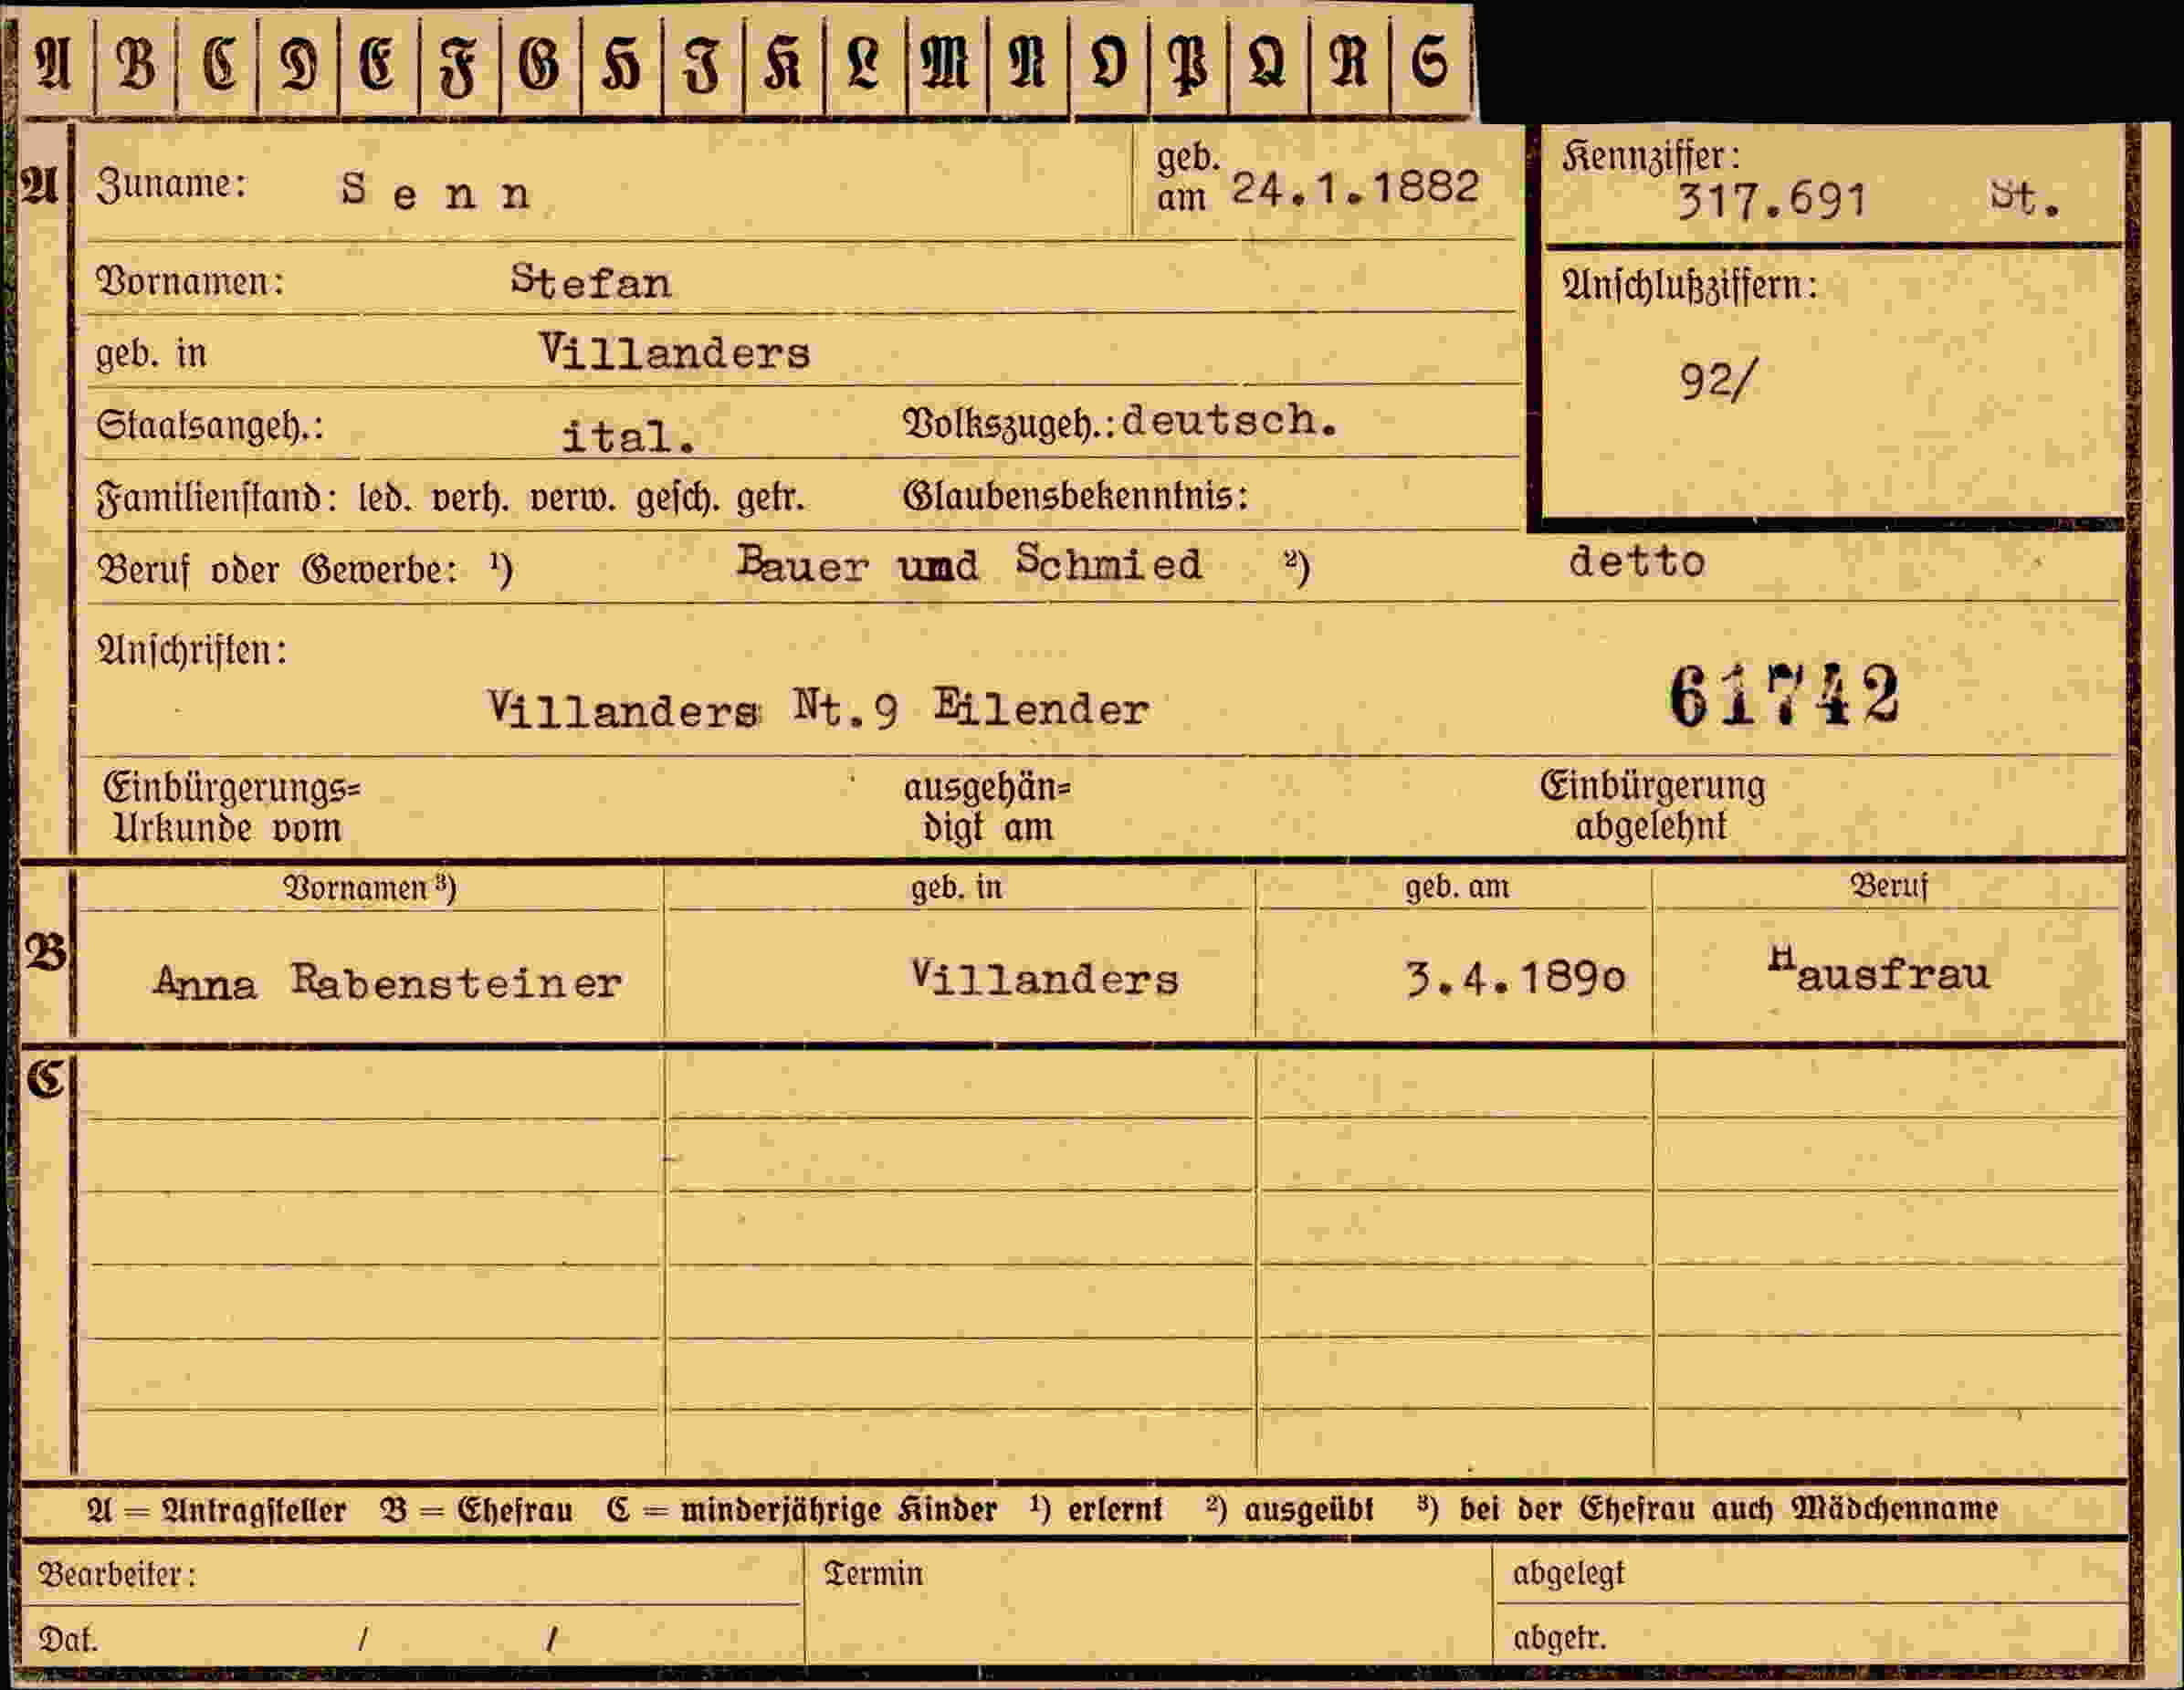 A B C D E F G H I K L M N O P Q R S
A Zuname: Senn geb. am 24.1.1882 Kennziffer: 317.691 St.
Vornamen: Stefan Anschlußziffern:
geb. in Villanders 92/
Staatsangeh.: ital. Volkszugeh.: deutsch.
Familienstand: led. verh. verw. gesch. getr. Glaubensbekenntnis:
Beruf oder Gewerbe: ¹) Bauer und Schmied ²) detto
Anschriften:
Villanders Nt.9 Eilender 61742
Einbürgerungs= ausgehän= Einbürgerung
Urkunde vom digt am abgelehnt
Vornamen ³) geb. in geb. am Beruf
B Anna Rabensteiner Villanders 3.4.1890 Hausfrau
C
A = Antragsteller B = Ehefrau C = minderjährige Kinder ¹) erlernt ²) ausgeübt ³) bei der Ehefrau auch Mädchenname
Bearbeiter: Termin abgelegt
Dat. / / abgetr.